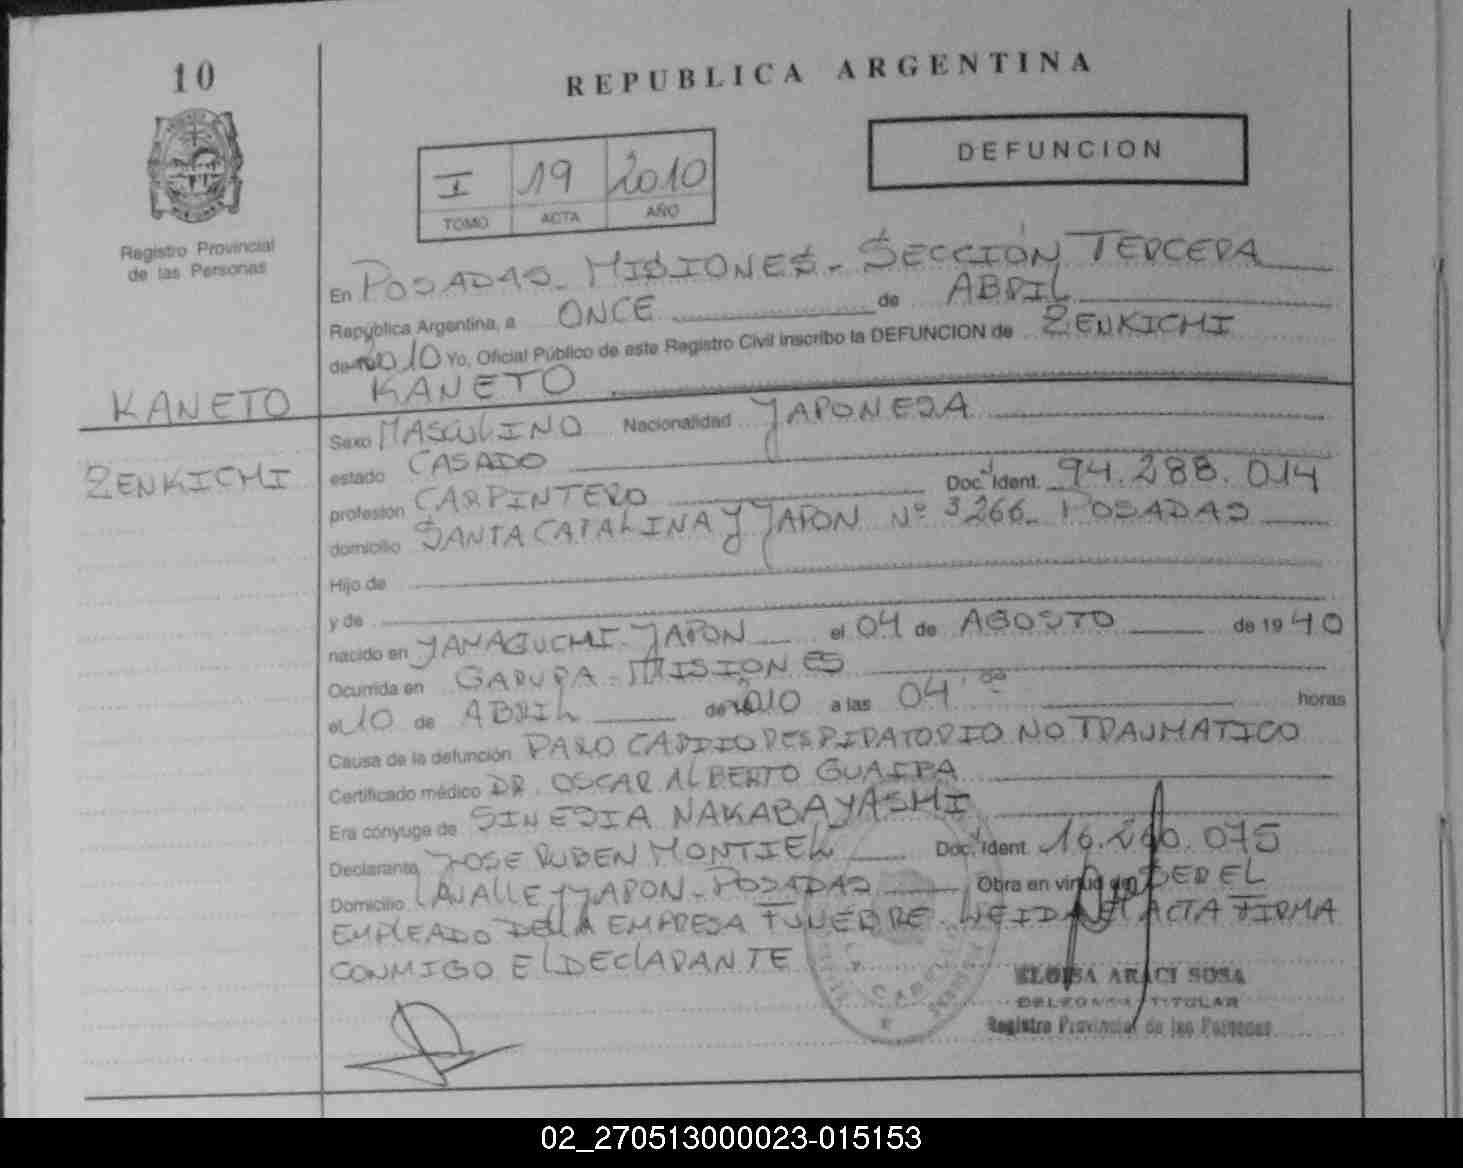 10
REPUBLICA ARGENTINA
DEFUNCION
I 19 2010
TOMO ACTA AÑO
Registro Provincial
de las Personas
En POSADAS - MISIONES - SECCIÓN TERCERA
República Argentina, a ONCE de ABRIL
de 2010 Yo, Oficial Público de este Registro Civil inscribo la DEFUNCION de ZENKICHI
KANETO
KANETO
ZENKICHI
Sexo MASCULINO Nacionalidad JAPONESA
estado CASADO
profesión CARPINTERO Doc. Ident. 94.288.014
domicilio SANTA CATALINA Y JAPON Nº 3266 - POSADAS
Hijo de
y de
nacido en YAMAGUCHI - JAPON el 04 de AGOSTO de 1940
Ocurrida en GARUPA - MISIONES
el 10 de ABRIL de 2010 a las 04 horas
Causa de la defunción PARO CARDIO RESPIRATORIO NO TRAUMATICO
Certificado médico DR. OSCAR ALBERTO GUAIRA
Era cónyuge de SINESIA NAKABAYASHI
Declarante JOSE RUBEN MONTIEL Doc. Ident. 16.260.075
Domicilio LAVALLE Y JAPON - POSADAS Obra en virtud de SER EL
EMPLEADO DE LA EMPRESA FUNEBRE. LEIDA EL ACTA FIRMA
CONMIGO EL DECLARANTE
ELOISA ARACI SOSA
DELEGADA TITULAR
Registro Provincial de las Personas
02_270513000023-015153